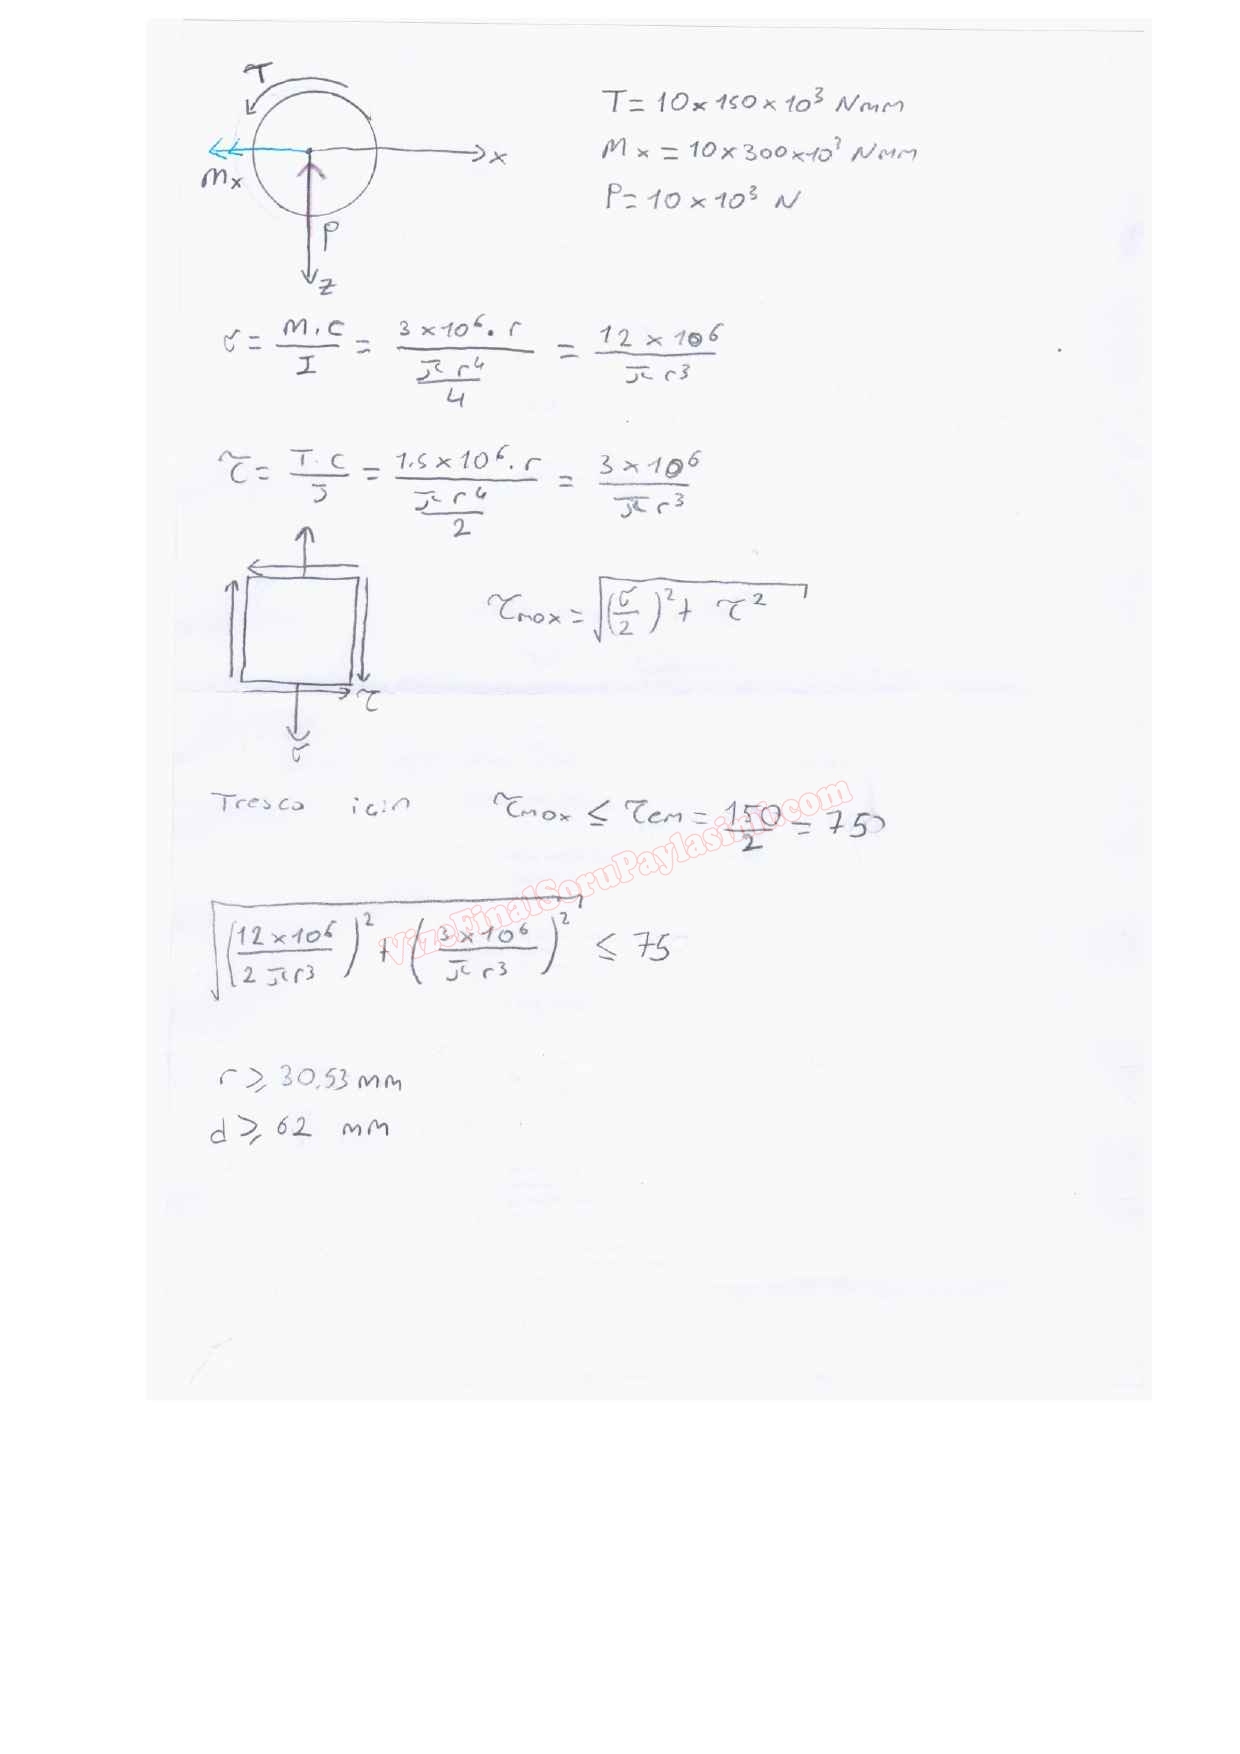 T
x
Mx
P
z
T = 10 × 150 × 10³ Nmm
Mx = 10 × 300 × 10³ Nmm
P = 10 × 10³ N
σ = M.C / I = 3 × 10⁶ . r / (π r⁴ / 4) = 12 × 10⁶ / π r³
τ = T.C / J = 1.5 × 10⁶ . r / (π r⁴ / 2) = 3 × 10⁶ / π r³
τmax = √((σ/2)² + τ²)
τ
σ
Tresca için τmax ≤ τem = 150 / 2 = 75
VizeFinalSoruPaylasimi.com
√((12 × 10⁶ / 2 π r³)² + (3 × 10⁶ / π r³)²) ≤ 75
r ≥ 30.53 mm
d ≥ 62 mm